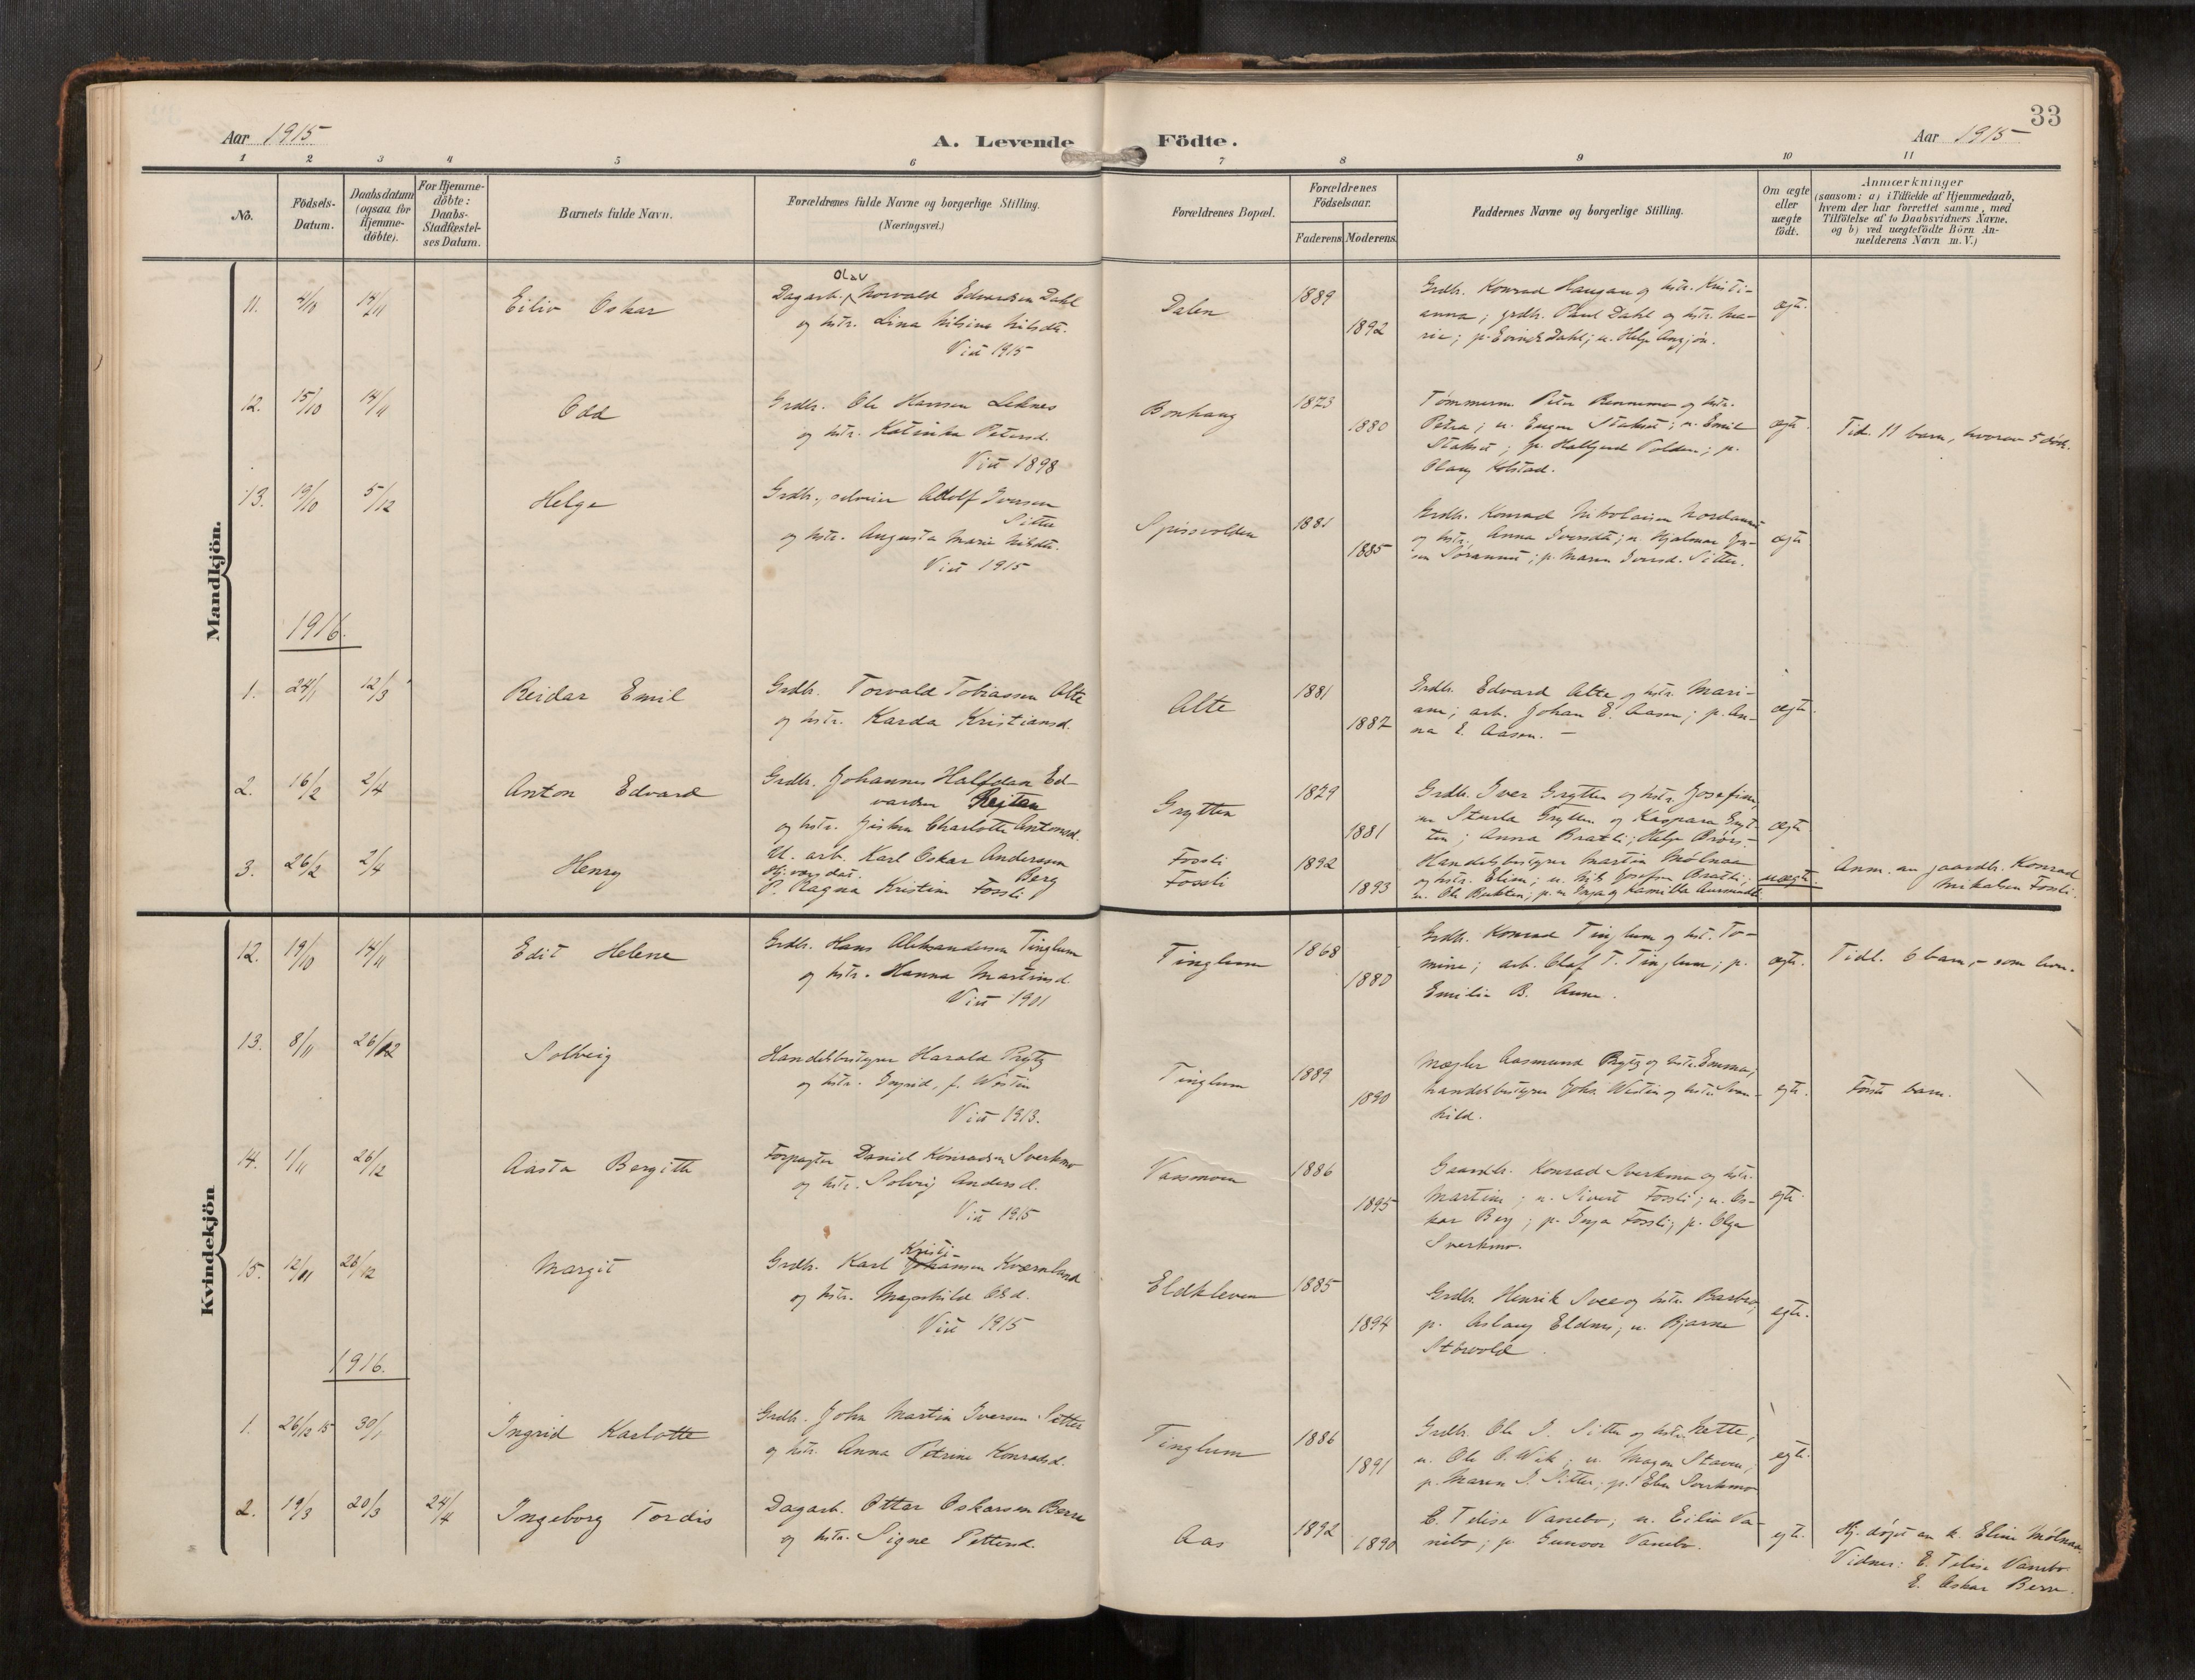 33
Aar 1915
A. Levende Födte.
Aar 1915
1 2 3 4 5 6 7 8 9 10 11
No.
Födsels-Datum.
Daabsdatum (ogsaa for Hjemme-döbte).
For Hjemme-döbte: Daabs-Stadfestel-ses Datum.
Barnets fulde Navn.
Forældrenes fulde Navne og borgerlige Stilling.
(Næringsvei.)
Forældrenes Bopæl.
Forældrenes Födselsaar.
Faderens Moderens.
Faddernes Navne og borgerlige Stilling.
Om ægte eller uægte födt.
Anmærkninger
(saasom: a) i Tilfælde af Hjemmedaab,
hvem der har forrettet samme, med
Tilföielse af to Daabsvidners Navne,
og b) ved uægtefödte Börn An-
melderens Navn m. V.)
Mandkjön.
11. 4/10 14/11 Eiliv Oskar
Olav
Dagarb. Norvald Edvardsen Dahl
og hstr. Lina Nilsine Nilsdtr.
Viet 1915
Dalen 1889 1892
Grdb. Konrad Haugan og hstr. Kristi-
anna; grdb. Paul Dahl og hstr. Ma-
rie; p. Evind Dahl; u. Helge
ægte.
12. 15/10 14/11 Odd
Grdb. Ole Hansen Leknes
og hstr. Katinka Petersd.
Viet 1898
Bonhaug 1873 1880
Tømmerm. Peter Rennemo og hstr.
Petra; u. Eugen Stakset; u. Emil
Stakset; p. Hallgerd Volden; p.
Olaug Kolstad.
ægte.
Tid. 11 barn, hvorav 5 død.
13. 19/10 5/12 Helge
Grdb., selveier Adolf Iversen
Sitter
og hstr. Augusta Marie Nilsdtr.
Viet 1915
Spissvolden 1881 1885
Grdb. Konrad Nikolaisen
og hstr. Anna Iversdtr; u. Hjalmar
p. Maren Iversd. Sitter.
ægte
1916.
1. 24/1 12/3 Reidar Emil
Grdb. Torvald Tobiassen Alte
og hstr. Karda Kristiansd.
Alte 1881 1882
Grdb. Edvard Alte og hstr. Mari-
ane; arb. Johan E. Aasen; p. An-
na E. Aasen. –
ægte.
2. 16/2 2/4 Anton Edvard
Grdb. Johannes Halfdan Ed-
vardsen Reitan
og hstr. Charlotte Antonsd.
Grytten 1881
Grdb. Iver Grytten og hstr. Josefine,
Sturla Grytten og Kaspara Gryt-
ten; Anna Bratli; Helge
ægte
3. 26/2 2/4 Henry
U. arb. Karl Oskar Anderssen
Berg
P. Ragna Kristine Fossli
Fossli
Fossli
1892 1893
Handelsbestyrer Martin Mølnaa
og hstr. Eline; u. Nils Josefsen Bratli;
u. Ole
uægte.
Anm. av gaardbr. Konrad
Mikalsen Fossli.
Kvindekjön
12. 19/10 14/11 Edit Helene
Grdb. Hans Aleksandersen Tinglum
og hstr. Hanna Martinsd.
Viet 1901
Tinglum 1868 1880
Grdb. Konrad Tinglum og hst. To-
mine; arb. Olaf T. Tinglum; p.
Emilie B. Aune.
ægte.
Tidl. 6 barn, – som lever.
13. 8/11 26/12 Solveig
Handelsbestyrer Harald Prytz
og hstr. Ingrid, f. Westin
Viet 1913.
Tinglum 1889 1890
Mægler Aasmund Prytz og hstr. Emma;
handelsbestyrer Johs. Westin og hstr. Svan-
hild.
egte.
Første barn.
14. 1/11 26/12 Aasta Bergitte
Forpagter Daniel Konradsen Sverkmo
og hstr. Solveig Andersd.
Viet 1915
Vassmoen 1886 1895
Gaardbr. Konrad Sverkmo og hstr.
Martine; u. Sivert Fossli; u. Os-
kar Berg; p. Inga Fossli; p. Olga
Sverkmo.
egte.
15. 12/11 26/12 Margit
Kristi-
Grdb. Karl Johansen Kvernland
og hstr. Magnhild Olsd.
Viet 1915
Eldkleven 1885 1894
Grdb. Henrik Svee og hstr. Barbro,
p. Aslaug Eldnes; u. Bjarne
Storvold.
egte.
1916.
1. 26/12 15 30/1 Ingrid Karlotte
Grdb. John Martin Iversen Sitter
og hstr. Anna Petrine Konradsd.
Tinglum 1886 1891
Grdb. Ole I. Sitter og hstr. Nette,
u. Ole O. Wik; u. Magne Staven;
p. Maren I. Sitter; p. Elen Sverkmo
egte.
2. 19/3 20/3 24/4 Ingeborg Tordis
Dagarb. Ottar Oskarsen Berre
og hstr. Signe Pettersd.
Aas 1892 1890
E. Telise Vanebo; u. Eiliv Va-
nebo; p. Gunvor Vanebo.
egte.
Hj. døpt av k. Eline Mølnaa.
Vidner: E. Telise Vanebo
E. Oskar Berre.